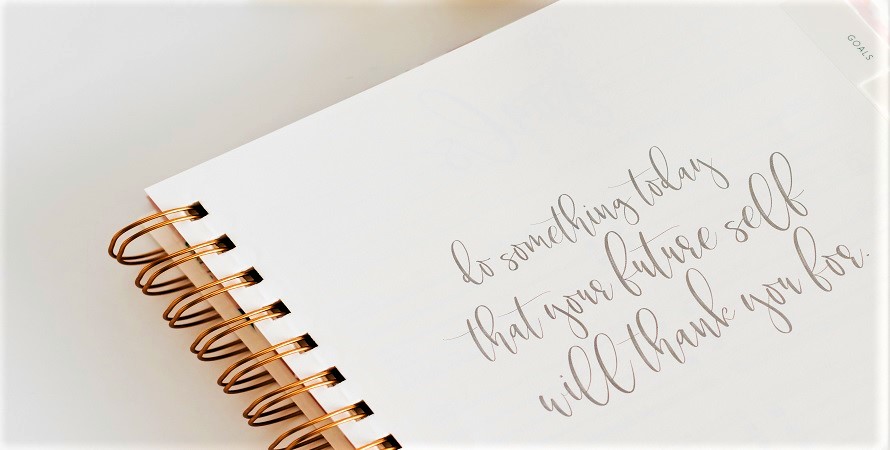 GOALS
do something today
that your future self
will thank you for.